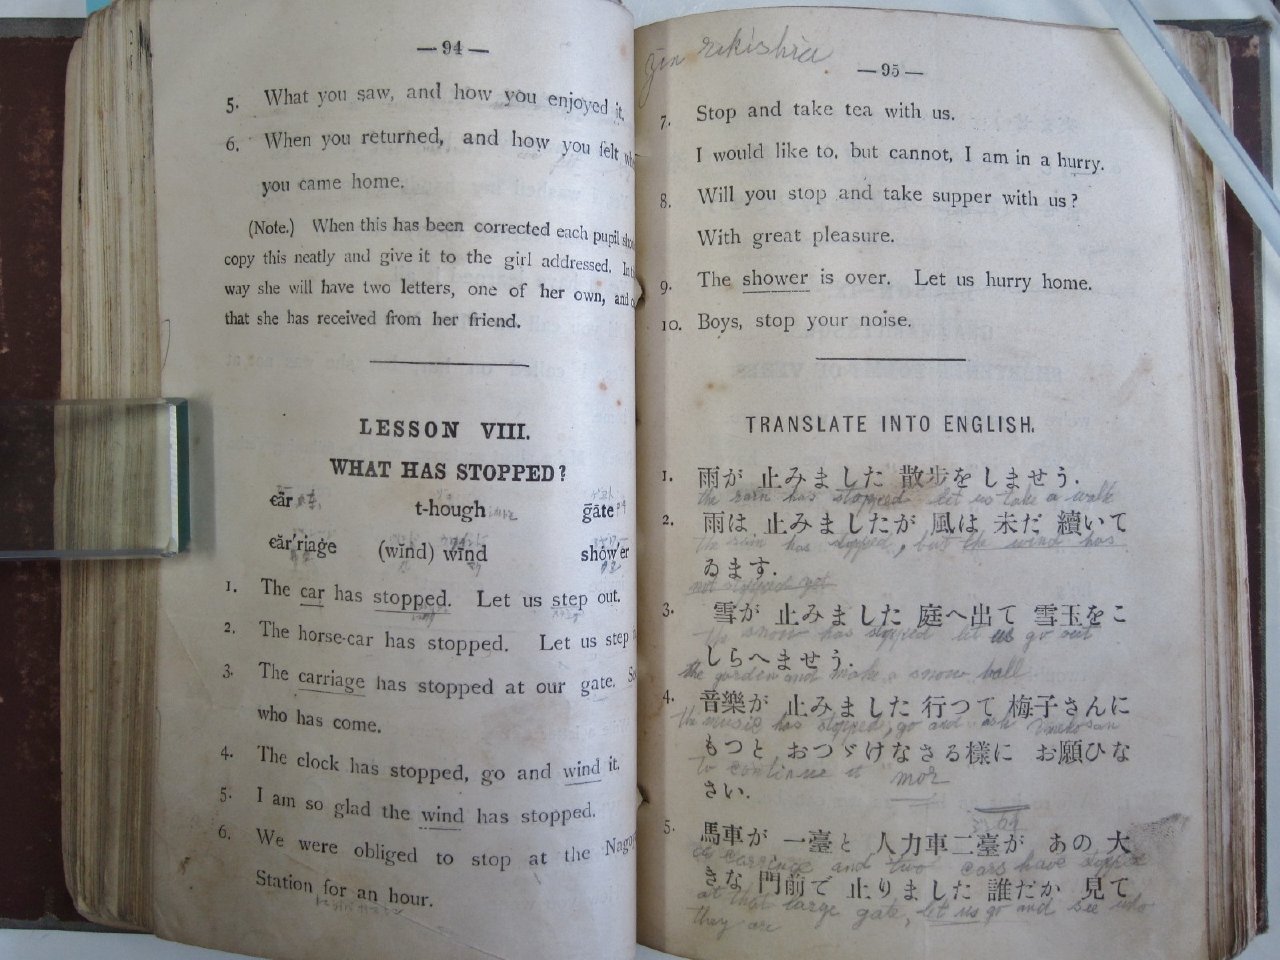 —94—
5. What you saw, and how you enjoyed it.
6. When you returned, and how you felt
you came home.
(Note.) When this has been corrected each pupil
copy this neatly and give it to the girl addressed. In
way she will have two letters, one of her own, and
that she has received from her friend.
LESSON VIII.
WHAT HAS STOPPED?
cär t-hough gāte
cär'riage (wīnd) wĭnd show'er
1. The car has stopped. Let us step out.
2. The horse-car has stopped. Let us step
3. The carriage has stopped at our gate.
who has come.
4. The clock has stopped, go and wind it.
5. I am so glad the wind has stopped.
6. We were obliged to stop at the
Station for an hour.
jin rikisha
—95—
7. Stop and take tea with us.
I would like to, but cannot, I am in a hurry.
8. Will you stop and take supper with us?
With great pleasure.
9. The shower is over. Let us hurry home.
10. Boys, stop your noise.
TRANSLATE INTO ENGLISH.
1. 雨が 止みました 散歩を しませう.
the rain has stopped let us take a walk
2. 雨は 止みましたが 風は 未だ 續いて
the rain has stopped, but the wind has
ゐます.
not stopped yet
3. 雪が 止みました 庭へ出て 雪玉をこ
snow has stopped let us go out
しらへませう.
the garden and make a snow ball
4. 音樂が 止みました 行つて 梅子さんに
the music has stopped, go and ask Umeko san
もつと おつゞけなさる樣に お願ひな
to continue it mor
さい.
5. 馬車が 一臺と 人力車二臺が あの 大
carriage and two cars have stopped
きな 門前で 止りました 誰だか 見て
at that large gate, let us go and see who
they are